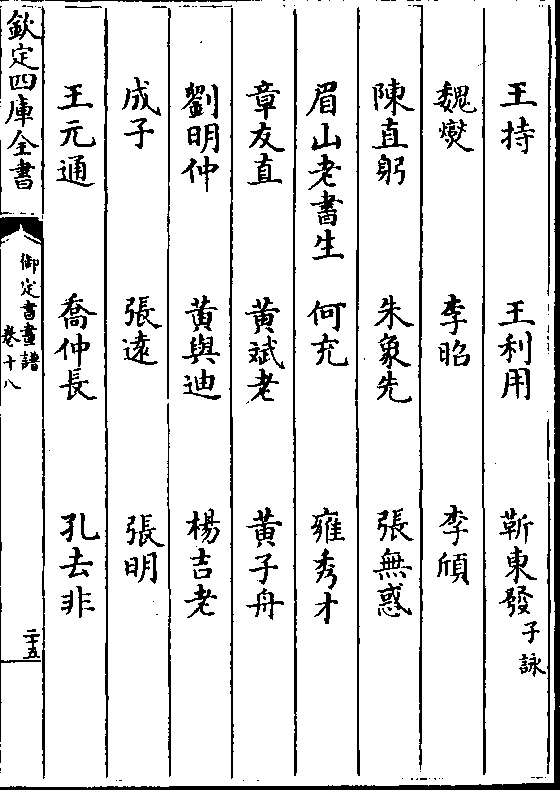 王持 王利用 靳東發子詠
魏燮 李昭 李頎
陳直躬 朱象先 張無惑
眉山老書生 何充 雍秀才
章友直 黃斌老 黃子舟
劉明仲 黃與迪 楊吉老
成子 張遠 張明
王元通 喬仲長 孔去非
欽定四庫全書
御定書畫譜
卷十八
二十五